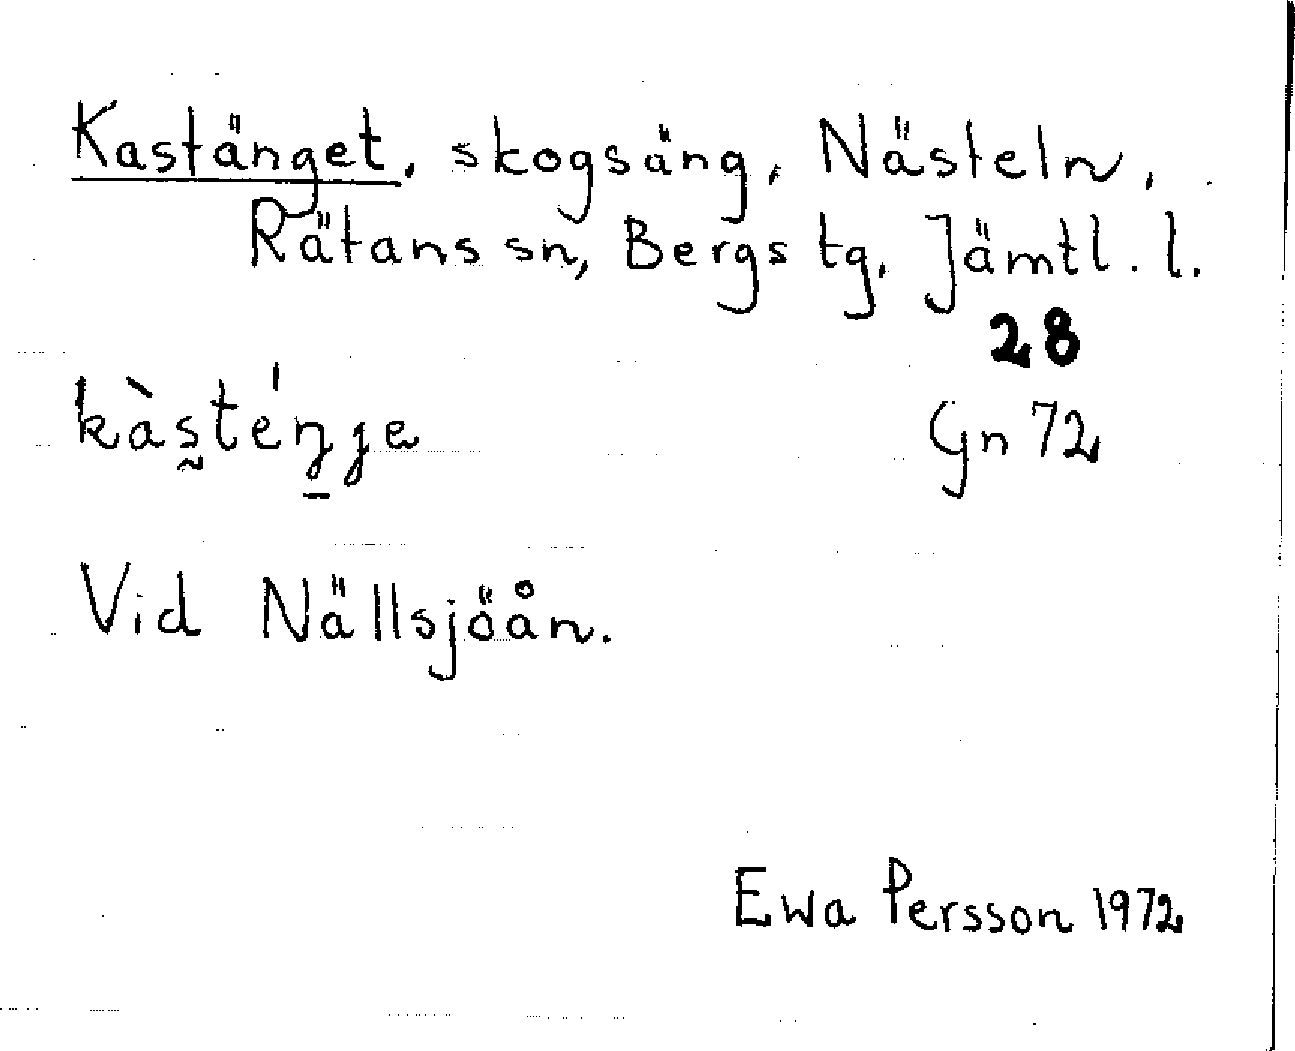 Kastänget, skogsäng, Nästeln,
Rätans sn, Bergs tg, Jämtl. l.
28
kàsténje Gn 72
Vid Nällsjöån.
Ewa Persson 1972